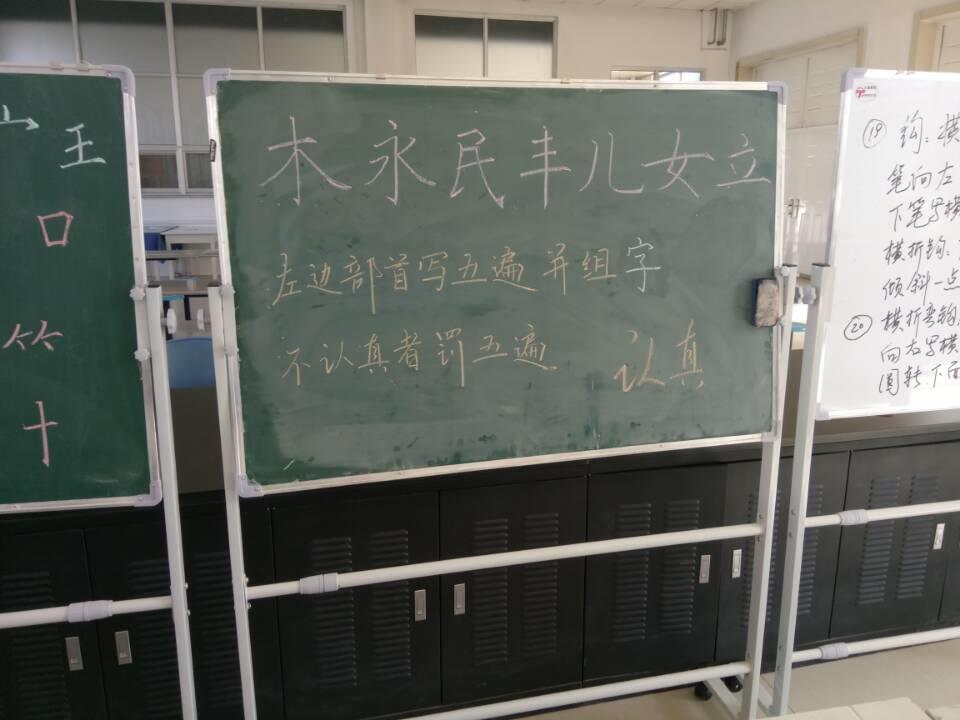 王
口
竹
十
木永民丰儿女立
左边部首写五遍并组字
不认真者罚五遍 认真
19 钩：横
笔向左
下笔写横
横折钩：
倾斜一点
20 横折弯钩
向右写横
圆转.下面